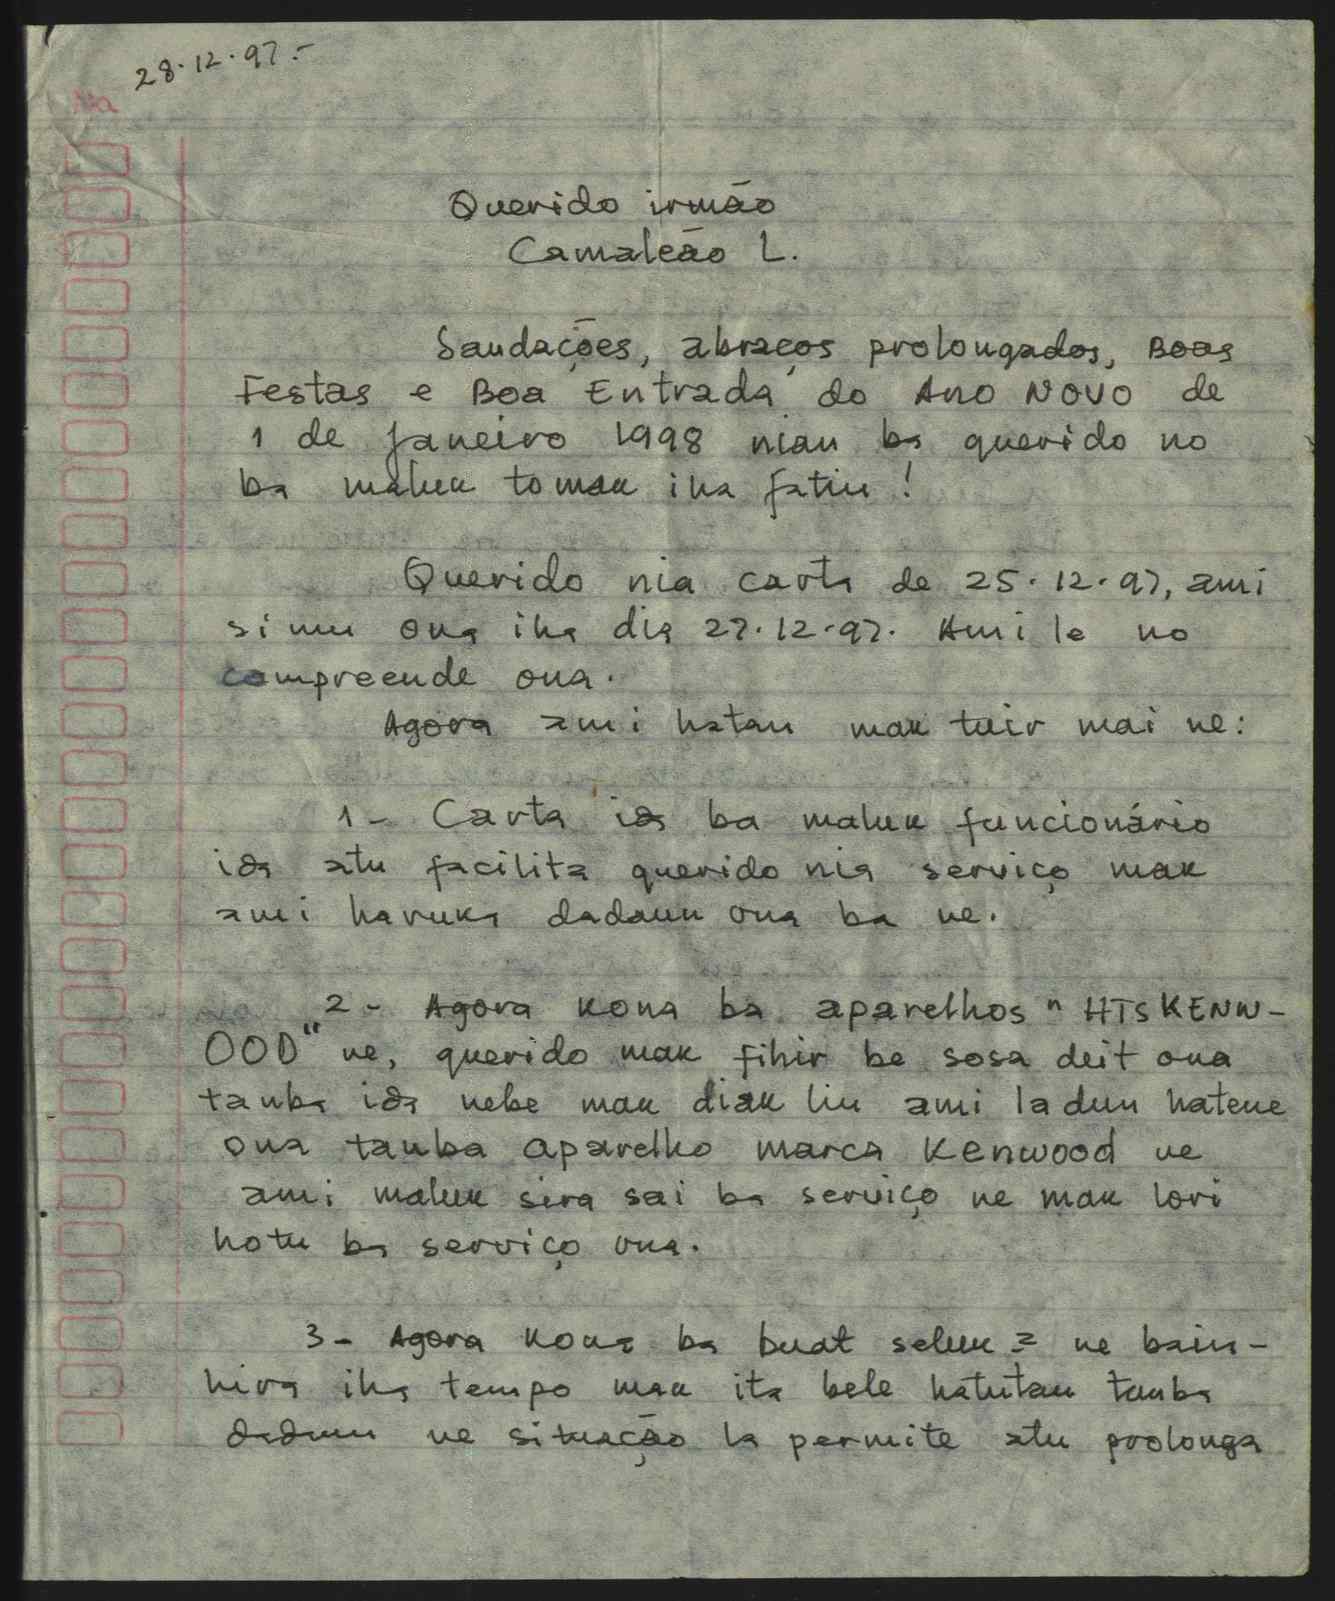 28.12.97.-
No
Querido irmão
Camaleão L.
Saudações, abraços prolongados, Boas
Festas e Boa Entrada do Ano Novo de
1 de Janeiro 1998 nian ba querido no
ba maluk tomak iha fatin !
Querido nia carta de 25.12.97, ami
simu ona iha dia 27.12.97. Ami le no
compreende ona.
Agora ami hatan mak tuir mai ne:
1- Carta ida ba maluk funcionário
ida atu facilita querido nia serviço mak
ami haruka dadaun ona ba ne.
2- Agora kona ba aparelhos " HTS KENW-
OOD" ne, querido mak fihir be sosa deit ona
tanba ida nebe mak diak liu ami ladun hatene
ona tanba aparelho marca Kenwood ne
ami maluk sira sai ba serviço ne mak lori
hotu ba serviço ona.
3- Agora kona ba buat seluk 2 ne bain-
hira iha tempo mak ita bele hatutan tanba
dadaun ne situação la permite atu prolonga